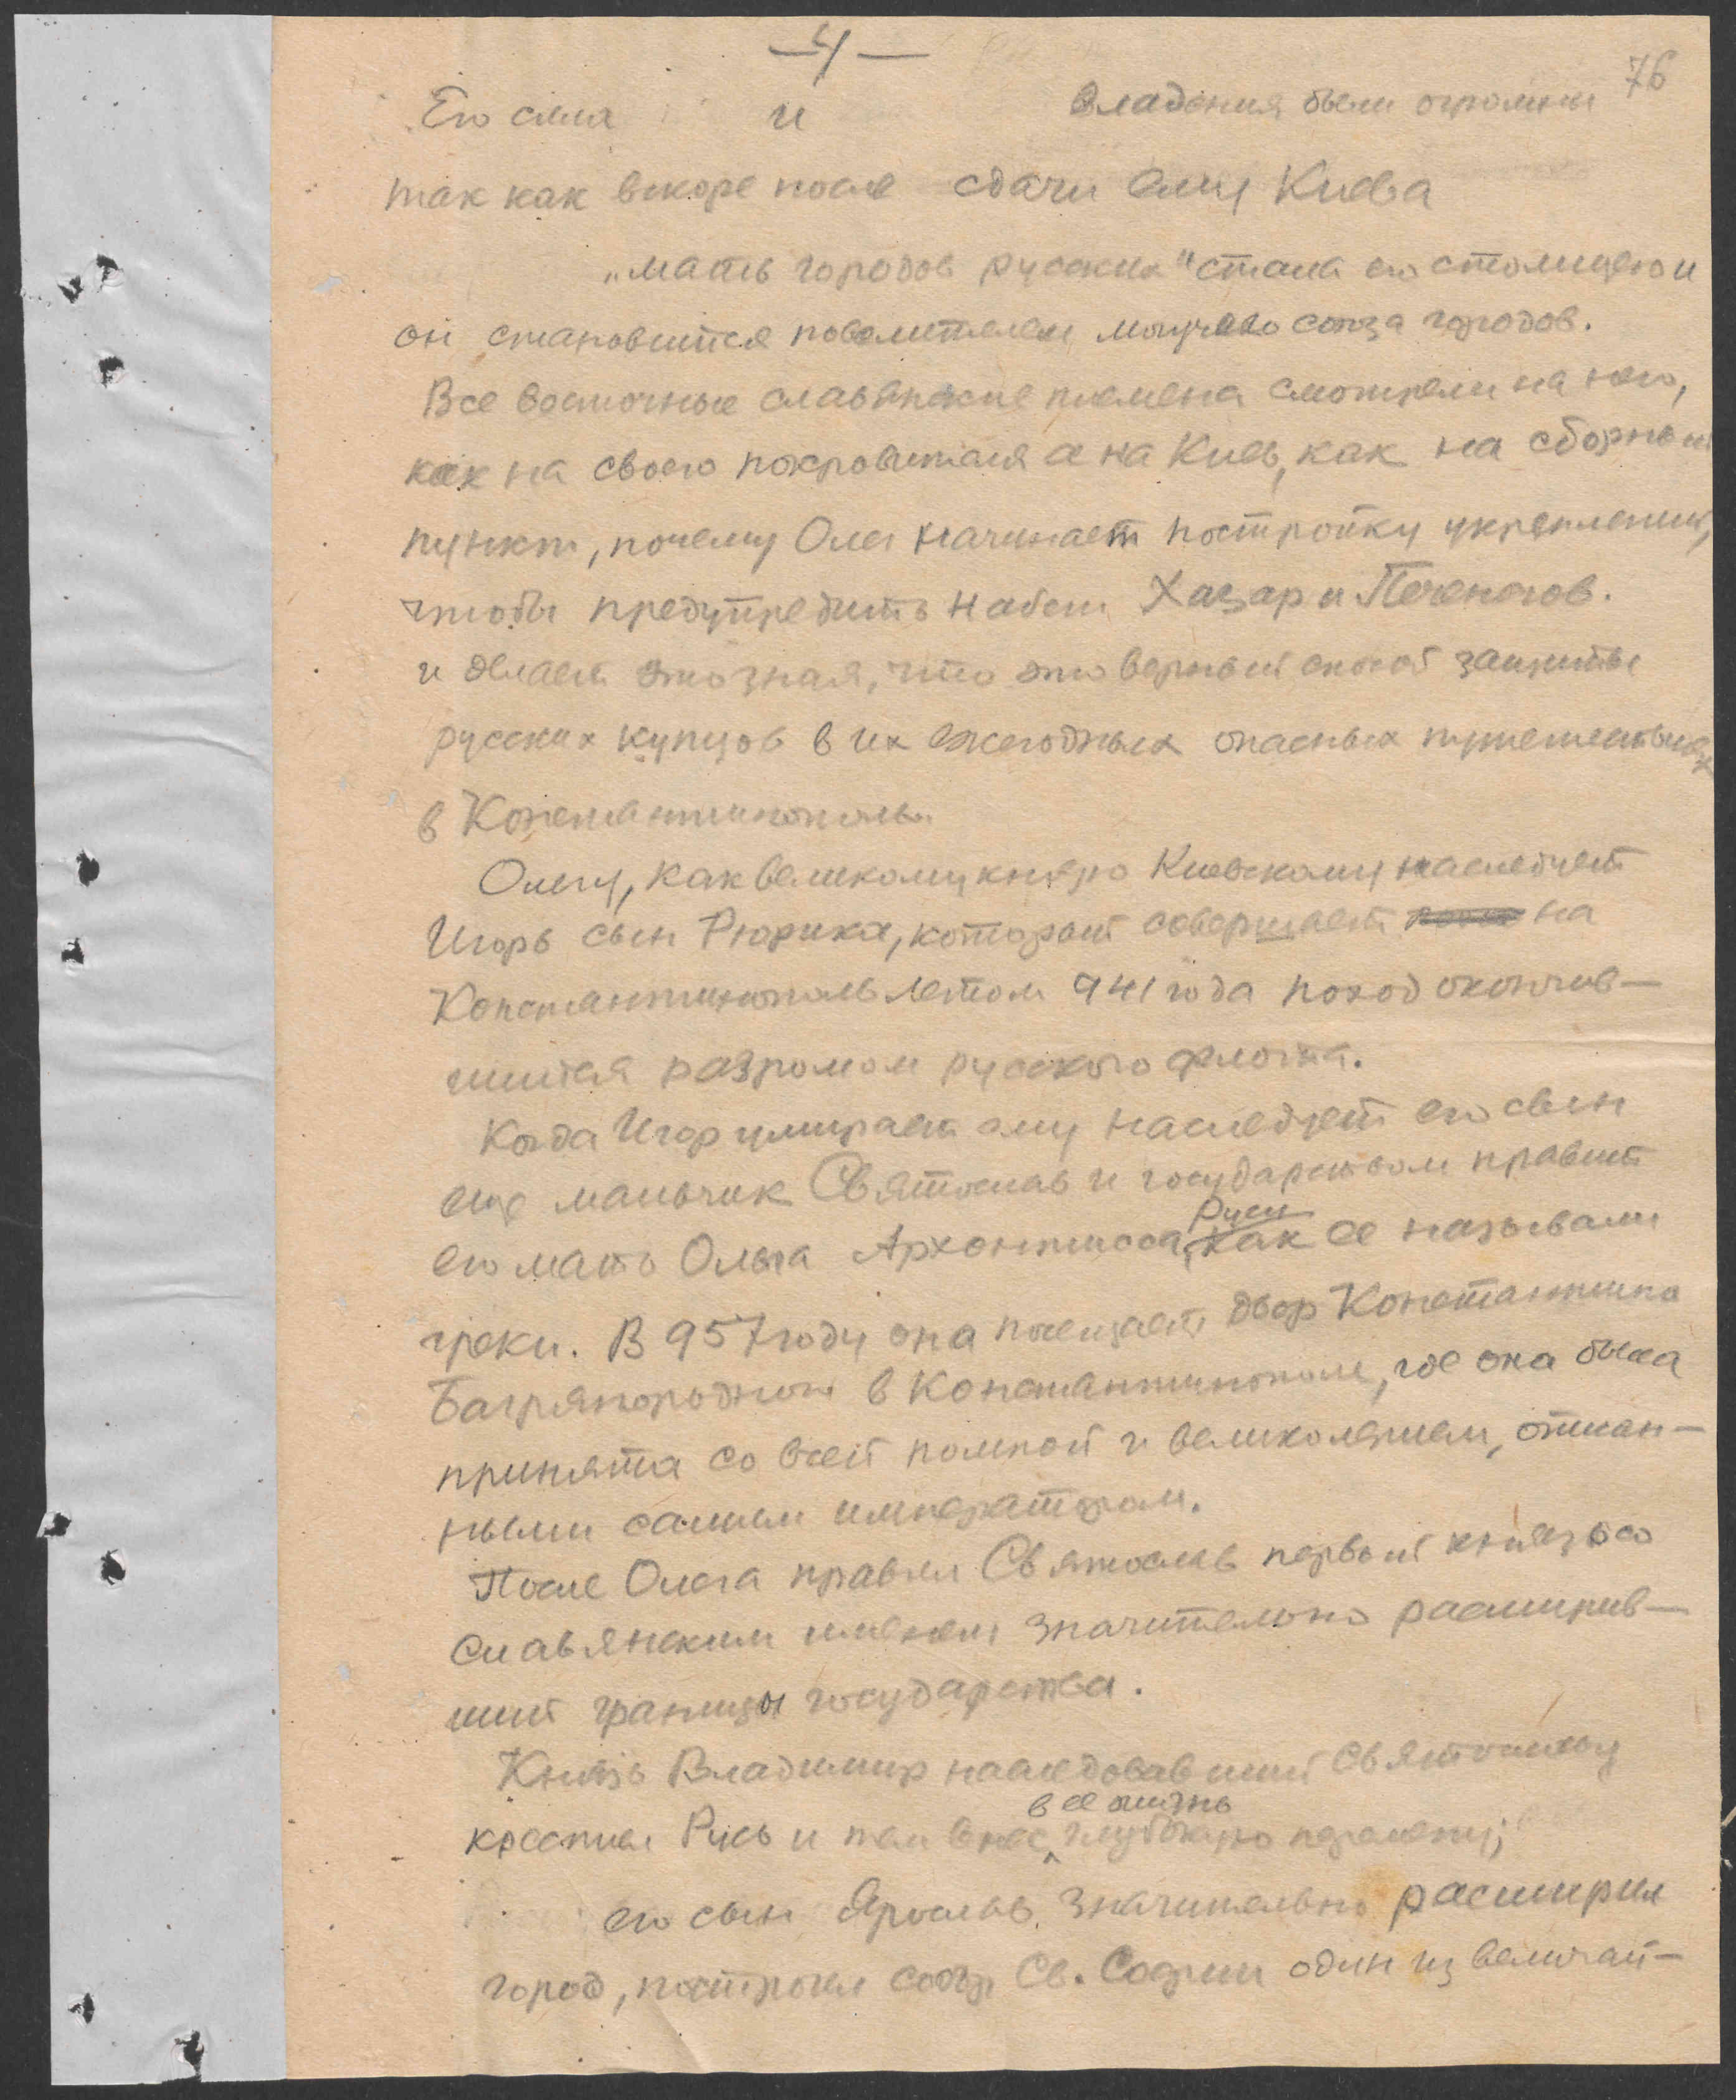 —4—
76
Его сила и владения были огромны
так как вскоре после сдачи ему Киева
„мать городов русских" стала его столицею и
он становится повелителем могучего союза городов.
Все восточные славянские племена смотрели на него,
как на своего покровителя а на Киев, как на сборный
пункт, почему Олег начинает постройку укреплений,
чтобы предупредить набеги Хазар и Печенегов.
и делает это зная, что это верный способ защиты
русских купцов в их ежегодных опасных путешествиях
в Константинополь.
Олегу, как великому князю Киевскому наследует
Игорь сын Рюрика, который совершает на
Константинополь летом 941 года поход окончив—
шийся разгромом русского флота.
Когда Игор умирает ему наследует его сын
еще мальчик Святослав и государством правит
его мать Ольга Архонтисса Руси, как ее называли
греки. В 957 году она посещает двор Константина
Багрянородного в Константинополе, где она была
принята со всей помпой и великолепием, отман—
ными самим императором.
После Олега правил Святослав первый князь со
славянским именем значительно расширив—
ший границы государства.
Князь Владимир наследовавший Святославу
крестил Русь и тем внес в ее жизнь глубокую перемену;
его сын Ярослав значительно расширил
город, построил собор Св. Софии один из величай—